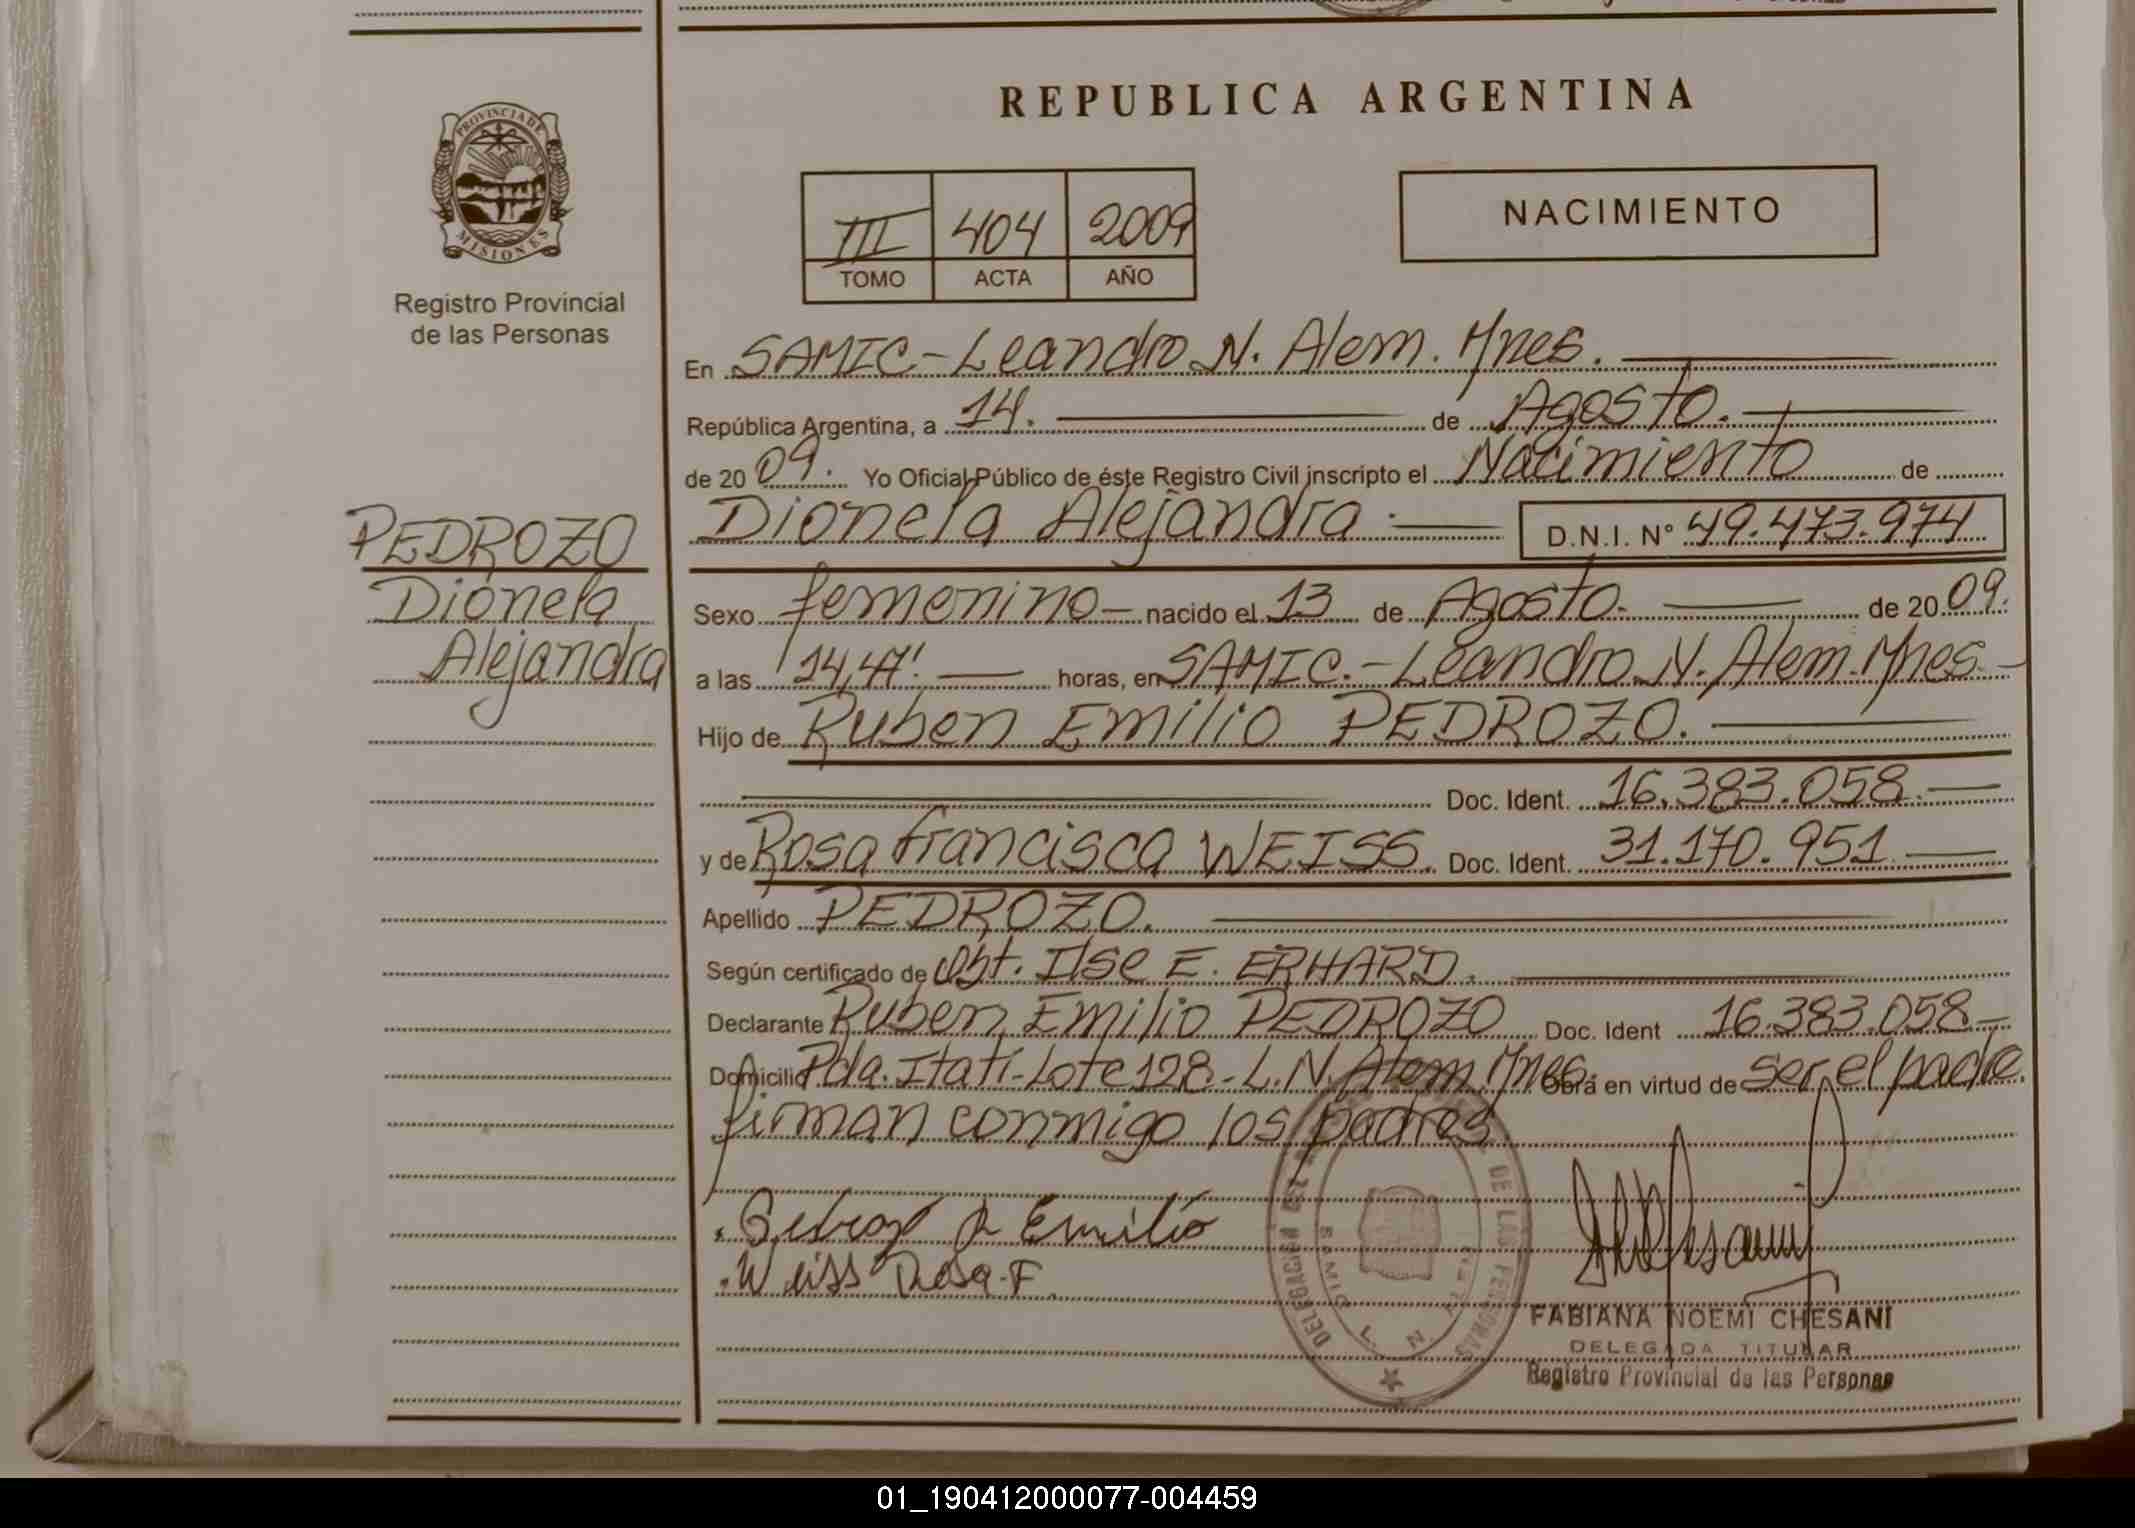 PROVINCIA DE
MISIONES
Registro Provincial
de las Personas
REPUBLICA ARGENTINA
III 404 2009
TOMO ACTA AÑO
NACIMIENTO
En SAMIC - Leandro N. Alem. Mnes.
República Argentina, a 14. de Agosto.
de 20 09. Yo Oficial Público de éste Registro Civil inscripto el Nacimiento de
Dionela Alejandra. D.N.I. N° 49.473.974
PEDROZO
Dionela
Alejandra
Sexo femenino nacido el 13 de Agosto. de 20 09.
a las 14,47' horas, en SAMIC. - Leandro N. Alem. Mnes.
Hijo de Ruben Emilio PEDROZO.
Doc. Ident. 16.383.058.
y de Rosa Francisca WEISS. Doc. Ident. 31.170.951
Apellido PEDROZO.
Según certificado de Obt. Ilse E. ERHARD.
Declarante Ruben Emilio PEDROZO Doc. Ident 16.383.058
Domicilio Pda. Itatí - Lote 128 - L.N. Alem. Mnes. Obra en virtud de ser el padre
firman conmigo los padres
Emilio
Weiss Rosa F
DELEGACION DE LAS PERSONAS
SAMIC L. N.
FABIANA NOEMI CHESANI
DELEGADA TITULAR
Registro Provincial de las Personas
01_190412000077-004459